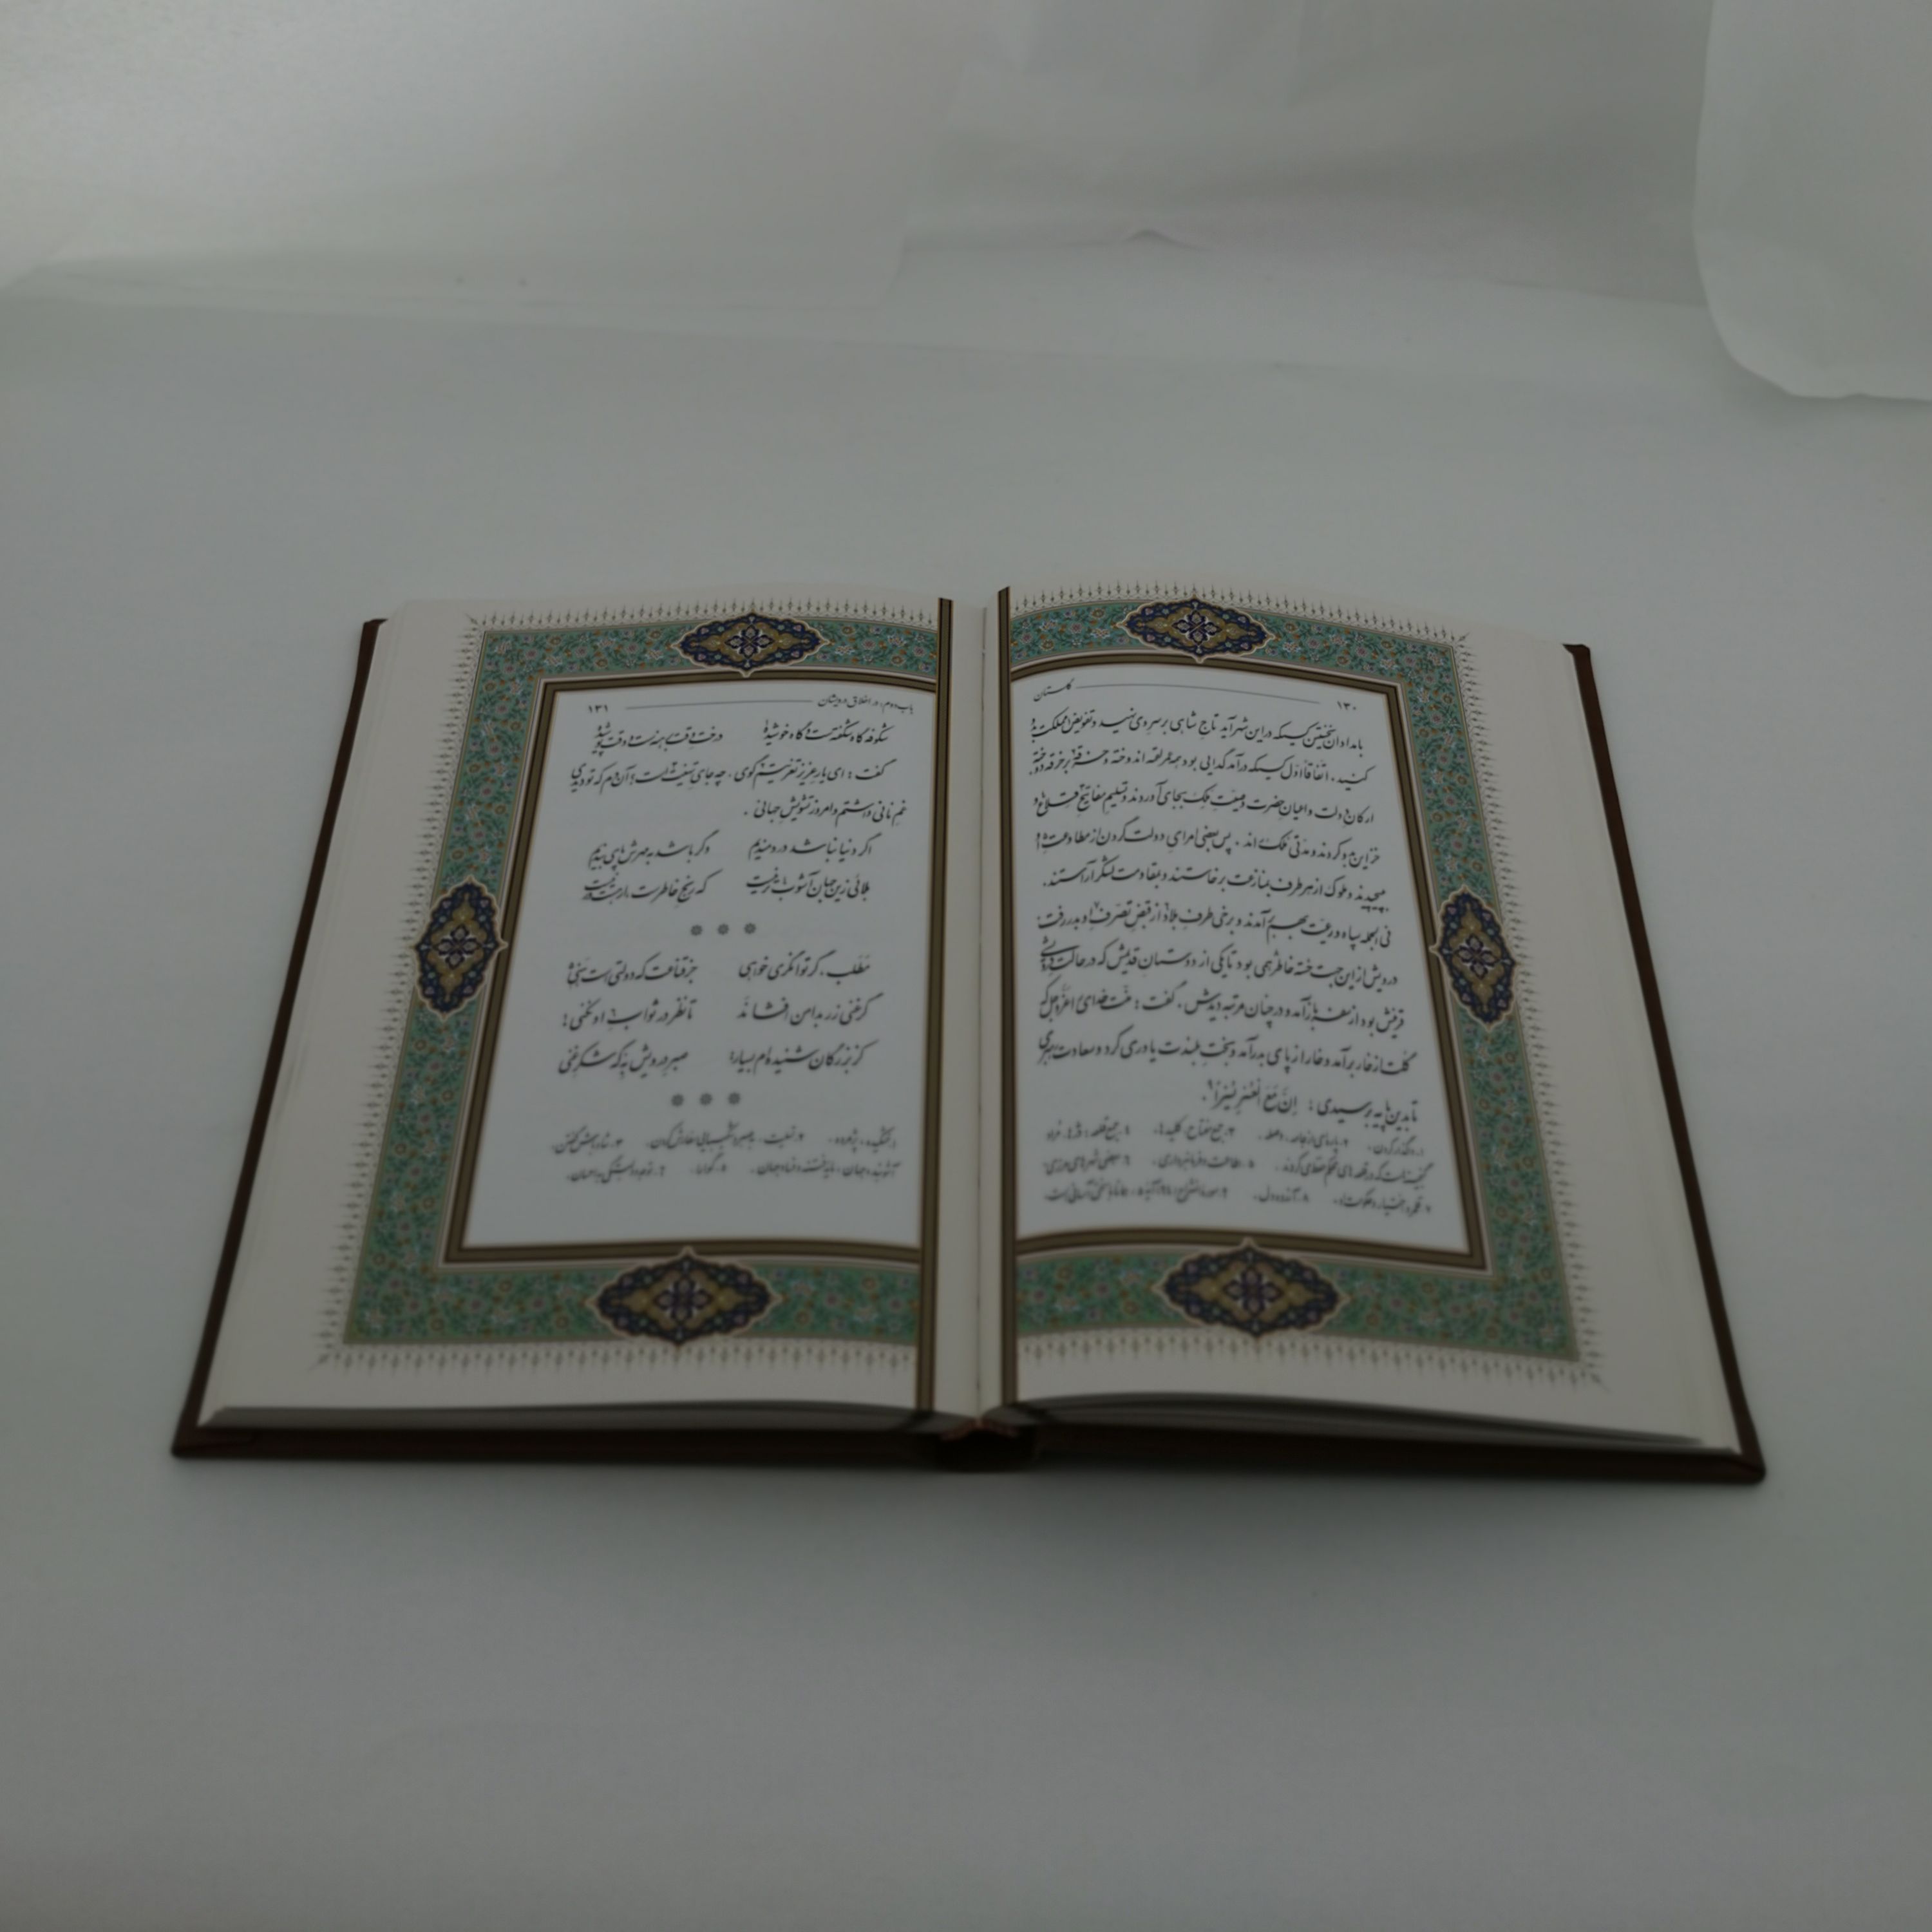 ۱۳۰ گلستان
بامدادان نخستین کسی که در این شهر آید تاج شاهی بر سر وی نهید و تفویض مملکت بدو
کنید. اتفاقاً اوّل کسی که درآمد گدایی بود همه عمر لقمه اندوخته و خرقه بر خرقه دوخته.
ارکان دولت و اعیان حضرت وصیّتِ ملک بجای آوردند و تسلیم مفاتیح قلاع و
خزاین بدو کردند و مدّتی ملک راند. پس بعضی امرای دولت گردن از مطاوعت او
بپیچیدند و ملوک از هر طرف بمنازعت برخاستند و بمقاومت لشکر آراستند.
فی الجمله سپاه و رعیّت بهم برآمدند و برخی طرفِ بلاد از قبض تصرّف او بدر رفت.
درویش از این جهت خسته خاطر همی بود تا یکی از دوستان قدیمش که در حالت درویشی
قرینش بود از سفر بازآمد و در چنان مرتبه دیدش، گفت: منّت خدای را عزّوجلّ که
گلت از خار برآمد و خار از پای بدرآمد و بختِ بلندت یاوری کرد و سعادت رهبری
تا بدین پایه برسیدی؛ اِنَّ مَعَ العُسْرِ یُسْراً۹.
۱. واگذار کردن. ۳. جمع مفتاح، کلیدها. ۴. جمع قلعه
۵. طاعت و فرمانبرداری.
باب دوم: در اخلاق درویشان ۱۳۱
شکوفه گاه شکفته ست و گاه خوشیده درخت وقت برهنه ست و وقت پوشیده
گفت: ای یار عزیز تعزیتم گوی، چه جای تهنیت است؛ آن دم که تو دیدی
غمِ نانی داشتم و امروز تشویشِ جهانی.
اگر دنیا نباشد دردمندیم وگر باشد به مهرش پای بندیم
بلائی زین جهان آشوب تر نیست که رنج خاطرست ار هست و ور نیست
مَطَلَب، گر توانگری خواهی جز قناعت که دولتی است هنی
گر غنی زر بدامن افشاند تا نظر در ثواب او نکنی!
کز بزرگان شنیده ام بسیار؛ صبر درویش به که شکر غنی
۱. خشکیده، پژمرده.